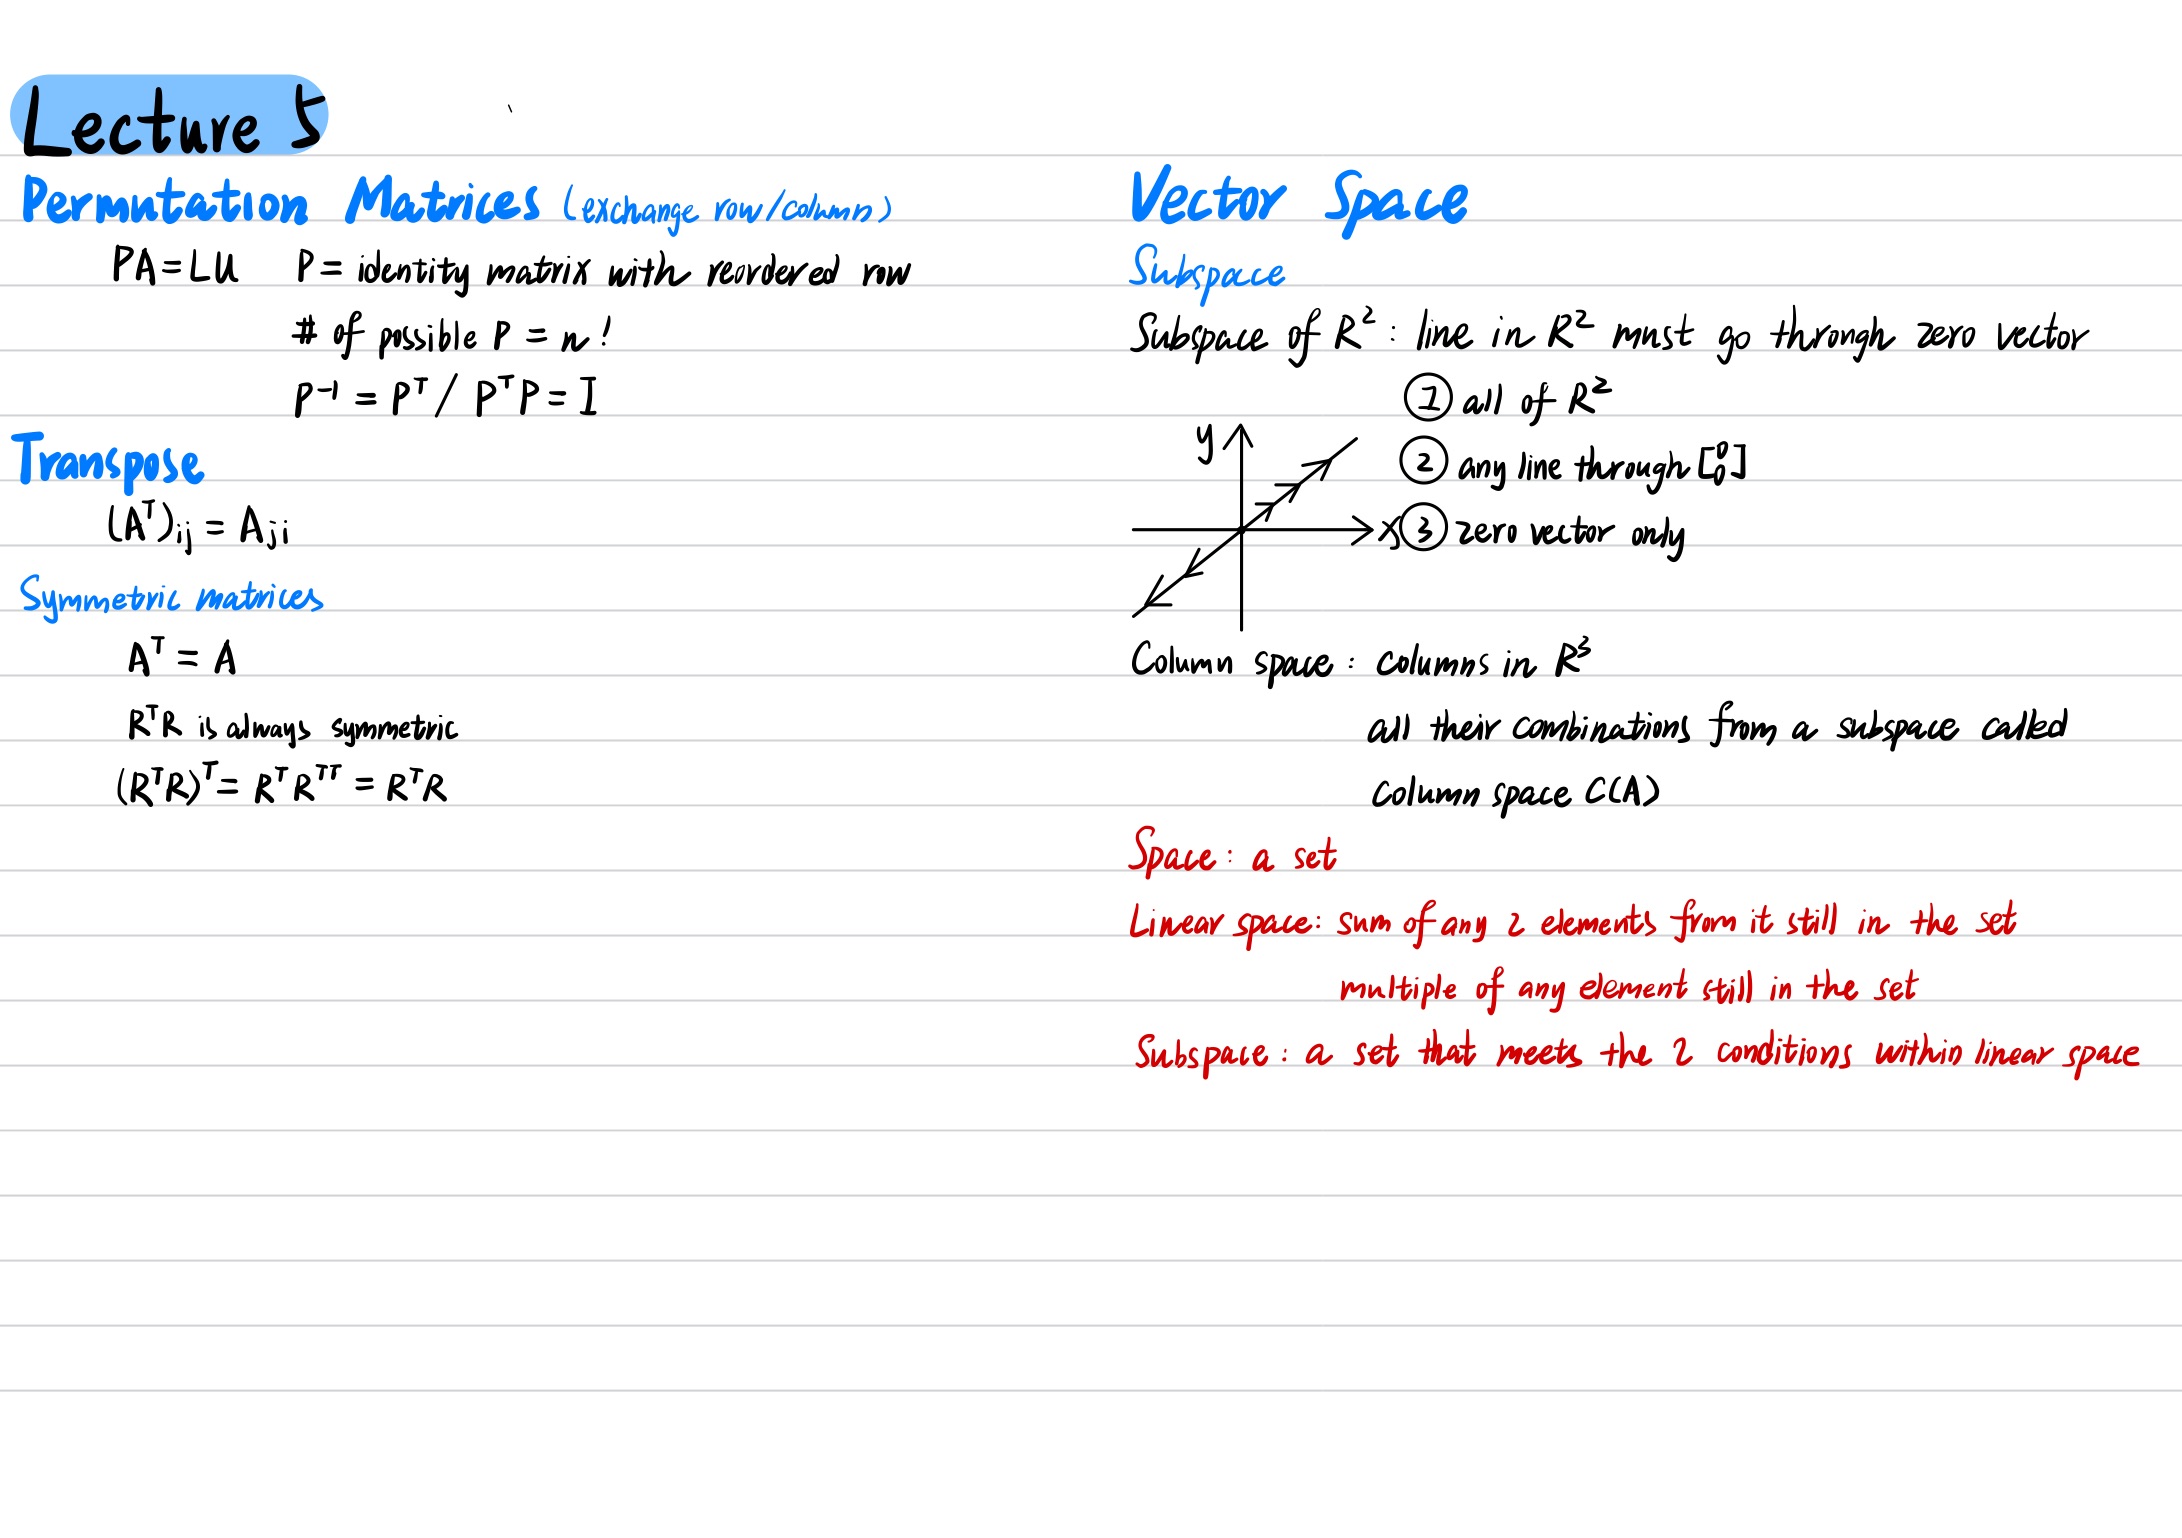 Lecture 5
Permutation Matrices (exchange row/column)
PA = LU P = identity matrix with reordered row
# of possible P = n!
P⁻¹ = Pᵀ / PᵀP = I
Transpose
(Aᵀ)ij = Aji
Symmetric matrices
Aᵀ = A
RᵀR is always symmetric
(RᵀR)ᵀ = RᵀRᵀᵀ = RᵀR
Vector Space
Subspace
Subspace of R² : line in R² must go through zero vector
① all of R²
y
② any line through [0 0]
x ③ zero vector only
Column space : columns in R³
all their combinations from a subspace called
column space C(A)
Space : a set
Linear space : sum of any 2 elements from it still in the set
multiple of any element still in the set
Subspace : a set that meets the 2 conditions within linear space